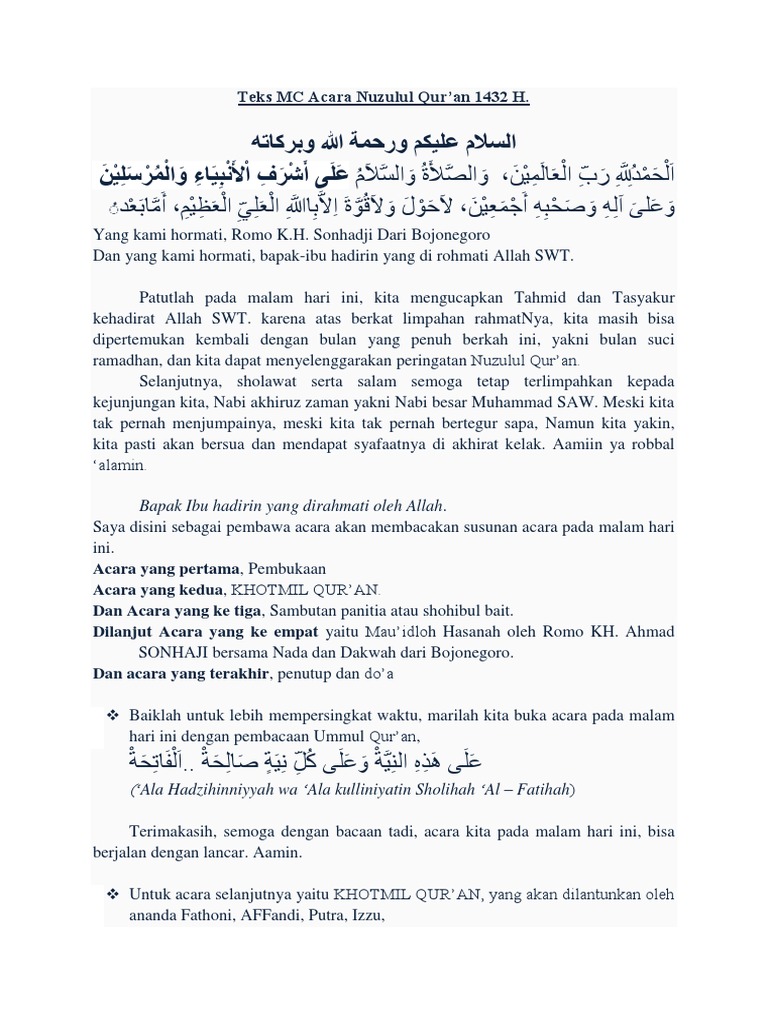 Teks MC Acara Nuzulul Qur’an 1432 H.
السلام عليكم ورحمة الله وبركاته
اَلْحَمْدُلِلَّهِ رَبِّ الْعَالَمِيْنَ، وَالصَّلاَةُ وَالسَّلاَمُ عَلَى أَشْرَفِ اْلأَنْبِيَاءِ وَالْمُرْسَلِيْنَ
وَعَلَىَ آلِهِ وَصَحْبِهِ أَجْمَعِيْنَ، لاَحَوْلَ وَلاَقُوَّةَ اِلاَّبِااللَّهِ الْعَلِيِّ الْعَظِيْمِ، أَمَّابَعْدُ
Yang kami hormati, Romo K.H. Sonhadji Dari Bojonegoro
Dan yang kami hormati, bapak-ibu hadirin yang di rohmati Allah SWT.
Patutlah pada malam hari ini, kita mengucapkan Tahmid dan Tasyakur
kehadirat Allah SWT. karena atas berkat limpahan rahmatNya, kita masih bisa
dipertemukan kembali dengan bulan yang penuh berkah ini, yakni bulan suci
ramadhan, dan kita dapat menyelenggarakan peringatan Nuzulul Qur’an.
Selanjutnya, sholawat serta salam semoga tetap terlimpahkan kepada
kejunjungan kita, Nabi akhiruz zaman yakni Nabi besar Muhammad SAW. Meski kita
tak pernah menjumpainya, meski kita tak pernah bertegur sapa, Namun kita yakin,
kita pasti akan bersua dan mendapat syafaatnya di akhirat kelak. Aamiin ya robbal
‘alamin.
Bapak Ibu hadirin yang dirahmati oleh Allah.
Saya disini sebagai pembawa acara akan membacakan susunan acara pada malam hari
ini.
Acara yang pertama, Pembukaan
Acara yang kedua, KHOTMIL QUR’AN.
Dan Acara yang ke tiga, Sambutan panitia atau shohibul bait.
Dilanjut Acara yang ke empat yaitu Mau’idloh Hasanah oleh Romo KH. Ahmad
SONHAJI bersama Nada dan Dakwah dari Bojonegoro.
Dan acara yang terakhir, penutup dan do’a
❖ Baiklah untuk lebih mempersingkat waktu, marilah kita buka acara pada malam
hari ini dengan pembacaan Ummul Qur’an,
عَلَى هَذِهِ النِيَّةْ وَعَلَى كُلِّ نِيَةٍ صَالِحَةْ ..اَلْفَاتِحَةْ
(‘Ala Hadzihinniyyah wa ‘Ala kulliniyatin Sholihah ‘Al – Fatihah)
Terimakasih, semoga dengan bacaan tadi, acara kita pada malam hari ini, bisa
berjalan dengan lancar. Aamin.
❖ Untuk acara selanjutnya yaitu KHOTMIL QUR’AN, yang akan dilantunkan oleh
ananda Fathoni, AFFandi, Putra, Izzu,